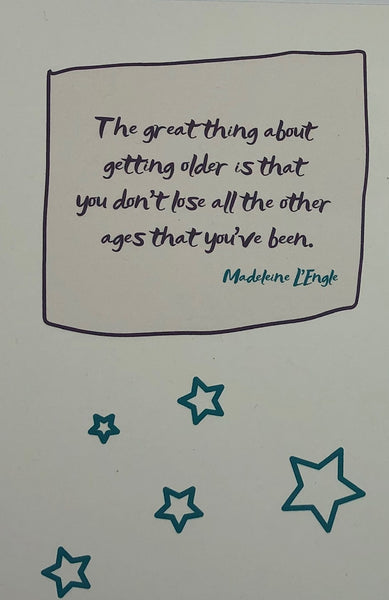 The great thing about
getting older is that
you don't lose all the other
ages that you've been.
Madeleine L'Engle